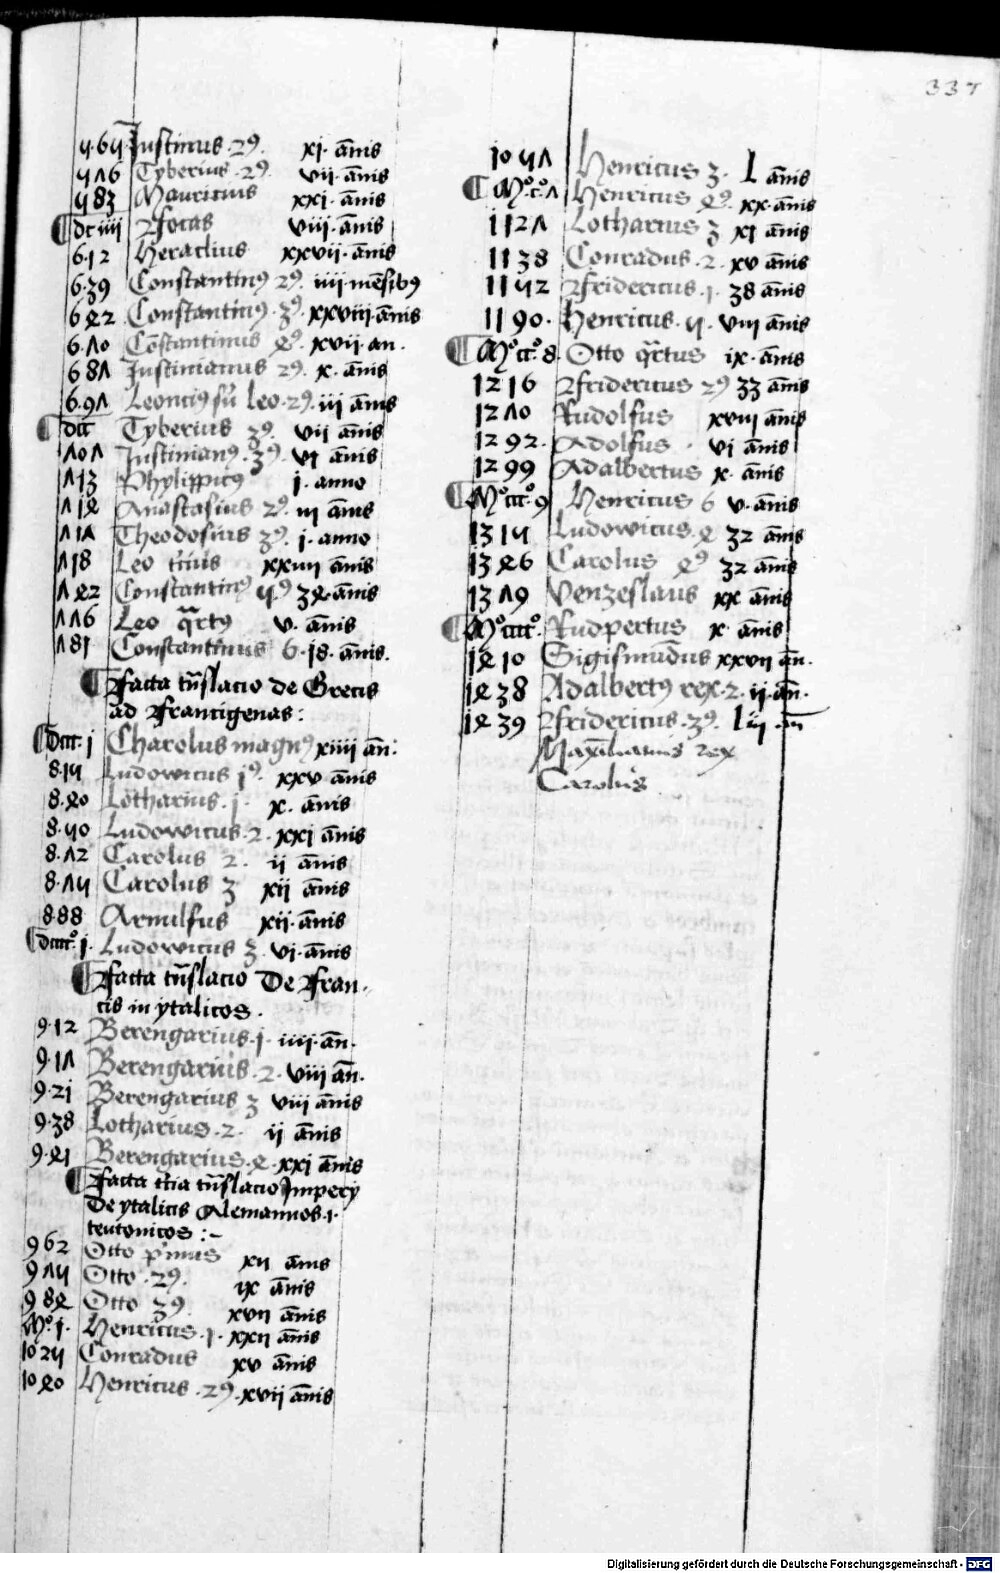 337
565 Justinus 29. xi. ānis
576 Tyberius 29. vii ānis
583 Mauricius xxi. ānis
dc iiij Focas viii. ānis
612 Heraclius xxvii. ānis
639 Constantin9 29. iiii mēsib9
642 Constantin9. 39. xxviii. ānis
670 Cōstantinus 49. xvii. an.
687 Justinianus 29. x. ānis
697 Leonci9 Leo. 29. iij ānis
dcc Tyberius 39. vii ānis
707 Justinian9. 39. vi ānis
713 Phylippic9 j. anno
714 Anastasius 29. iii ānis
717 Theodosius 39. j. anno
718 Leo t'cius xxiiii ānis
742 Constantin9 59 34 ānis
776 Leo q̄rt9 v. ānis
781 Constantinus 6. 18. ānis.
Facta trāslacio de Grecis
ad Francigenas:
Dccc. j Charolus magn9 xiiii ān:
815 Ludowicus j9. xxv ānis
840 Lotharius. j. x. ānis
850 Ludowicus. 2. xxi ānis
872 Carolus 2. ij ānis
875 Carolus 3 xij ānis
888 Arnulfus xii. ānis
dcccc°. j. Ludowicus 3. vi. ānis
Facta trāslacio De Fran-
cis in ytalicos.
912 Berengarius. j. iiij. ān.
917 Berengarius. 2. viii ān.
921 Berengarius 3 viii ānis
938 Lotharius. 2. ij ānis
941 Berengarius. 4. xxj ānis
Facta t'cia trāslacio Impery
De ytalicis Alemannos. j.
teutonicos :-
962 Otto p'mus xii ānis
975 Otto. 29. ix ānis
984 Otto 39. xvii ānis
M°. j. Henricus. j. xxii ānis
1025 Conradus xv ānis
1040 Henricus. 29. xvii ānis
1057 Henricus 3. L ānis
M°. c°. 7 Henricus 49. xx. ānis
1127 Lotharius 3 xj ānis
1138 Conradus. 2. xv ānis
1152 Fridericus. j. 38 ānis
1190. Henricus. 5. viii ānis
M°. cc°. 8. Otto q̄rtus ix. ānis
1216 Fridericus 29 33 ānis
1270 Rudolfus xviii ānis
1292. Adolfus. vi ānis
1299 Adalbertus x. ānis
M°. ccc°. 9 Henricus 6 v. ānis
1315 Ludowicus 4 32 ānis
1346 Carolus 49 32 ānis
1379 Venzeslaus xx ānis
M°. cccc°. Rudpertus x ānis
1410 Sigismūdus xxvii ān.
1438 Adalbert9 rex. 2. ii. ān.
1439 Fridericus. 39. liij. ān
Maximilianus rex
Carolus.
Digitalisierung gefördert durch die Deutsche Forschungsgemeinschaft - DFG